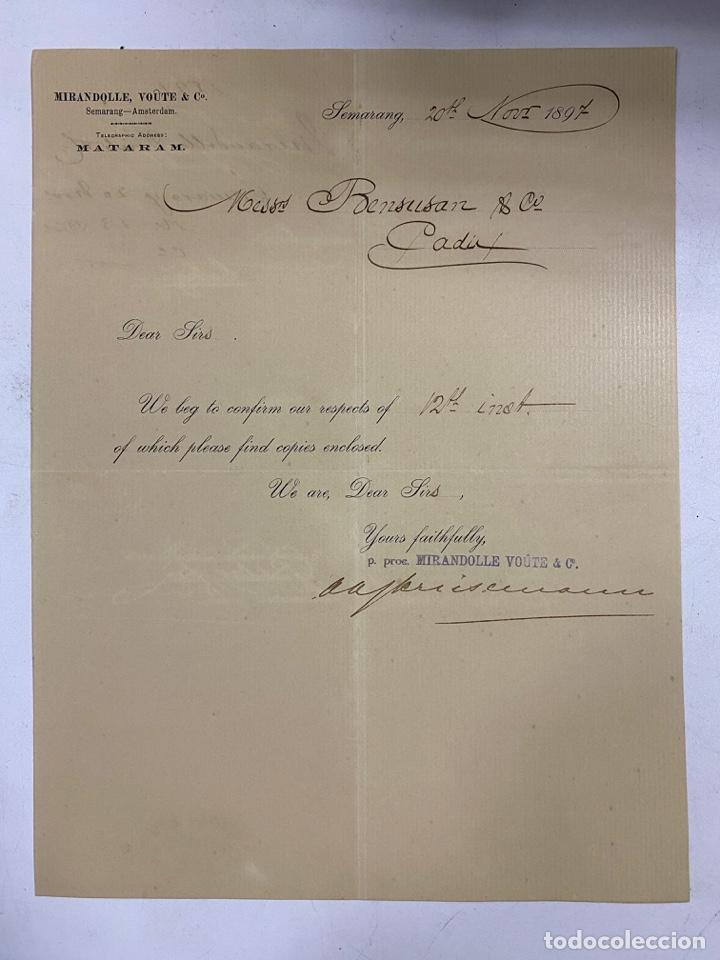 MIRANDOLLE, VOÛTE & Co.
Semarang—Amsterdam.
TELEGRAPHIC ADDRESS:
MATARAM.
Semarang, 20th Novr 1897
Messrs Bensusan & Co
Cadix
Dear Sirs.
We beg to confirm our respects of 12th inst.
of which please find copies enclosed.
We are, Dear Sirs,
Yours faithfully,
p. proc. MIRANDOLLE VOÛTE & Co.
todocoleccion
todocoleccion.net